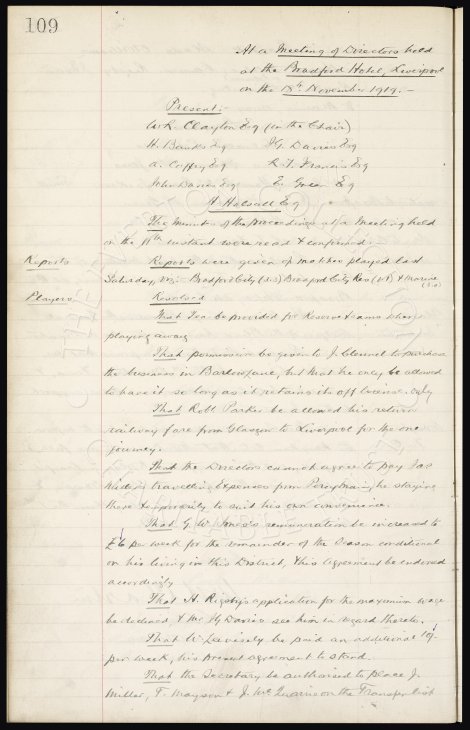 109
At a Meeting of Directors held
at the Bradford Hotel, Liverpool
on the 18th November 1919:-
Present:
W.R. Clayton Esq (in the Chair)
H. Banks Esq J.G. Davies Esq
A. Coffey Esq R.T. Francis Esq
John Davies Esq E. Green Esq
H. Halsall Esq
The Minutes of the proceedings of a Meeting held
on the 11th instant were read & confirmed.
Reports Reports were given of matches played last
Saturday, viz:- Bradford City Bradford City Res & Marine
Players Resolved
That Tea be provided for Reserve teams when
playing away
That permission be given to J. Clennel to purchase
the business in but that he only be allowed
to have it so long as it retains its off license only
That Robt Parker be allowed his return
railway fare from Glasgow to Liverpool for the one
journey.
That the Directors cannot agree to pay Jas
travelling expenses from he staying
there temporarily to suit his own convenience.
That G. W. remuneration be increased to
£6 per week for the remainder of the Season conditional
on his living in this District, & his agreement be endorsed
accordingly
That H. Rigsby's application for the maximum wage
be declined, & Mr J.G Davies see him in regard thereto.
That W. be paid an additional 10/-
per week, his present agreement to stand.
That the Secretary be authorised to place J.
Miller, T. Mayson & J. on the Transfer list